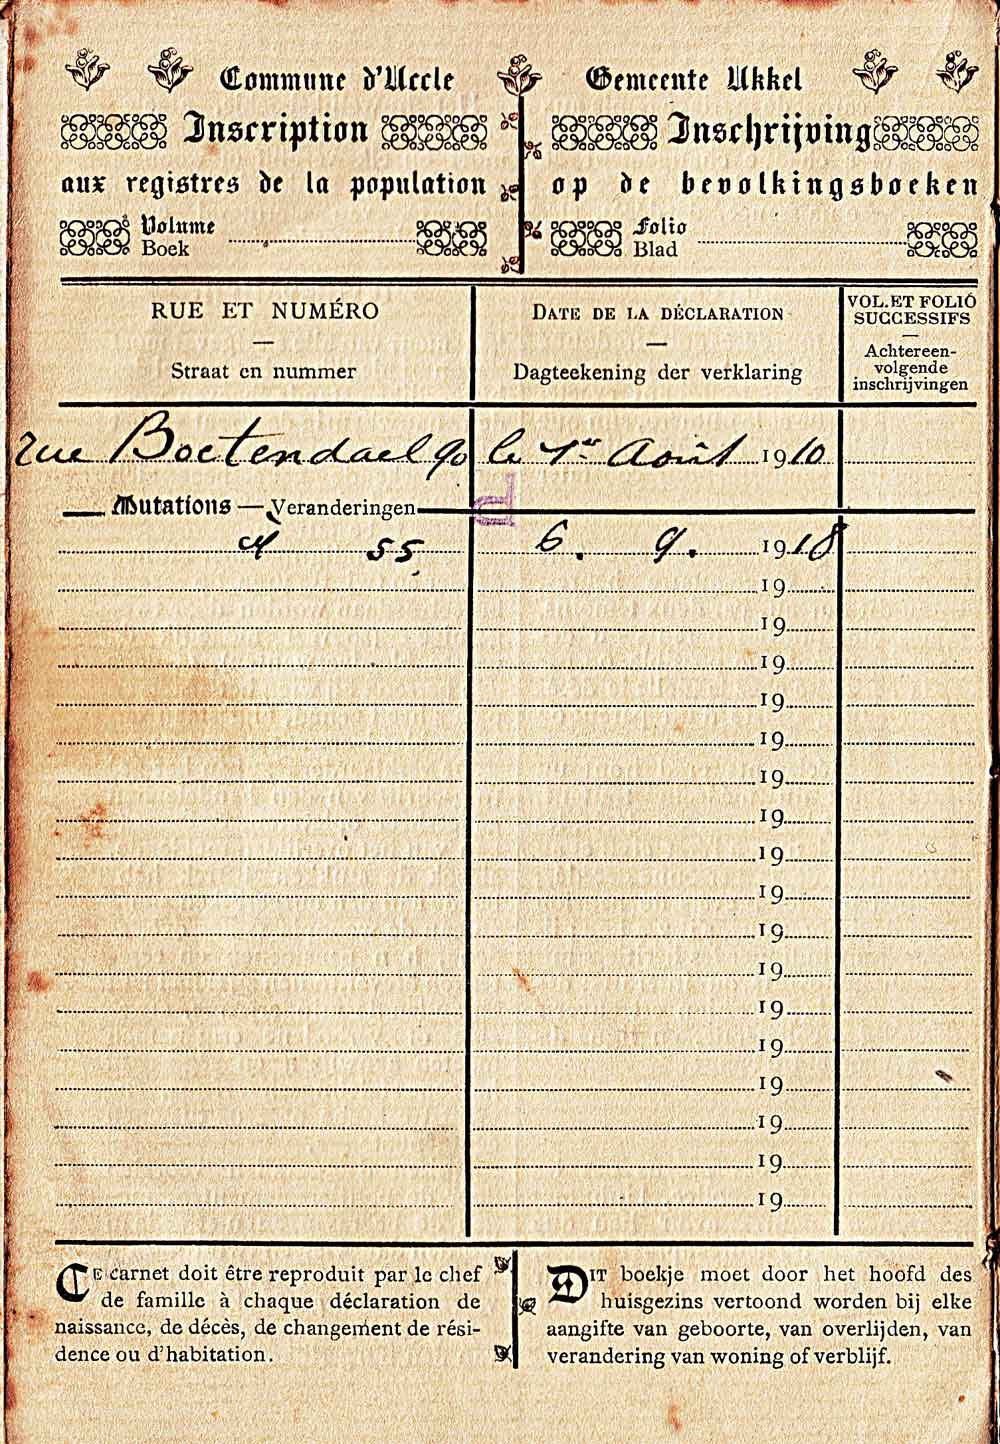 Commune d'Uccle
Inscription
aux registres de la population
Volume
Boek
Gemeente Ukkel
Inschrijving
op de bevolkingsboeken
Folio
Blad
RUE ET NUMÉRO
Straat en nummer
DATE DE LA DÉCLARATION
Dagteekening der verklaring
VOL. ET FOLIO
SUCCESSIFS
Achtereen-
volgende
inschrijvingen
rue Boetendael 90 le 1er Août 1910
Mutations — Veranderingen
d
55 6. 9. 1918
19
19
19
19
19
19
19
19
19
19
19
19
19
19
19
19
19
CE carnet doit être reproduit par le chef
de famille à chaque déclaration de
naissance, de décès, de changement de rési-
dence ou d'habitation.
DIT boekje moet door het hoofd des
huisgezins vertoond worden bij elke
aangifte van geboorte, van overlijden, van
verandering van woning of verblijf.